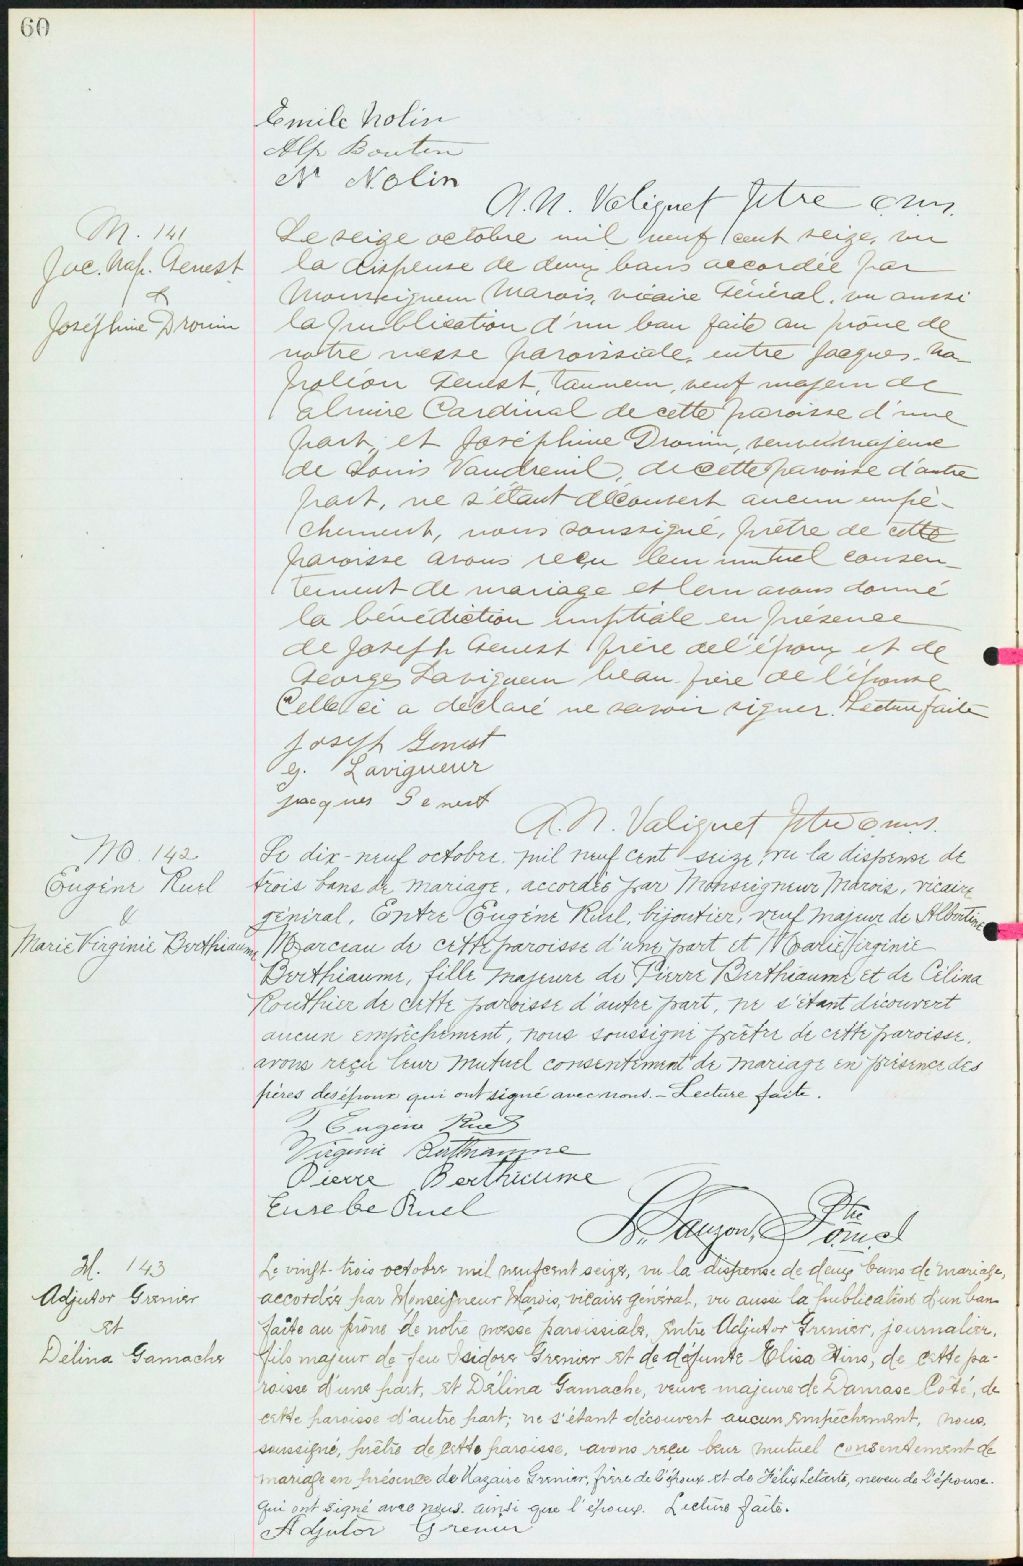 60
Emile Nolin
Alp Boutin
N. Nolin
A. N. Valiquet Ptre o.m.i.
M. 141
Jac. Nap. Genest
&
Joséphine Drouin
Le seize octobre mil neuf cent seize, vu
la dispense de deux bans accordée par
Monseigneur Marois, vicaire Général, vu aussi
la publication d'un ban faite au prône de
notre messe paroissiale, entre Jacques-Na
poléon Genest, tanneur, veuf majeur de
Elmire Cardinal de cette paroisse d'une
part, et Joséphine Drouin, veuve majeure
de Louis Vaudreuil, de cette paroisse d'autre
part, ne s'étant découvert aucun empê-
chement, nous soussigné, prêtre de cette
paroisse avons reçu leur mutuel consen-
tement de mariage et leur avons donné
la bénédiction nuptiale en présence
de Joseph Genest frère de l'époux et de
Georges Lavigueur beau-frère de l'épouse
Celle ci a déclaré ne savoir signer. Lecture faite
Joseph Genest
G. Lavigueur
Jacques Genest
A. N. Valiquet Ptre o.m.i.
M. 142
Eugène Ruel
&
Marie Virginie Berthiaume
Le dix-neuf octobre mil neuf cent seize, vu la dispense de
trois bans de mariage, accordée par Monseigneur Marois, vicaire
général, Entre Eugène Ruel, bijoutier, veuf majeur de Albertine
Marceau de cette paroisse d'une part et Marie Virginie
Berthiaume, fille majeure de Pierre Berthiaume et de Célina
Routhier de cette paroisse d'autre part, ne s'étant découvert
aucun empêchement, nous soussigné prêtre de cette paroisse,
avons reçu leur mutuel consentement de mariage en présence des
pères des époux qui ont signé avec nous. - Lecture faite.
Eugène Ruel
Virginie Berthiaume
Pierre Berthiaume
Eusebe Ruel
Lauzon, Ptre o.m.i.
M. 143
Adjutor Grenier
et
Délina Gamache
Le vingt-trois octobre mil neuf cent seize, vu la dispense de deux bans de mariage,
accordée par Monseigneur Marois, vicaire général, vu aussi la publication d'un ban
faite au prône de notre messe paroissiale, entre Adjutor Grenier, journalier,
fils majeur de feu Isidore Grenier et de défunte Elisa Hins, de cette pa-
roisse d'une part, et Délina Gamache, veuve majeure de Damase Côté, de
cette paroisse d'autre part; ne s'étant découvert aucun empêchement, nous,
soussigné, prêtre de cette paroisse, avons reçu leur mutuel consentement de
mariage en présence de Nazaire Grenier, frère de l'époux et de Félix Letarte, neveu de l'épouse.
qui ont signé avec nous ainsi que l'époux. Lecture faite.
Adjutor Grenier